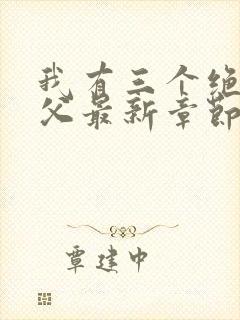 我有三个绝
父最新章节
覃建中